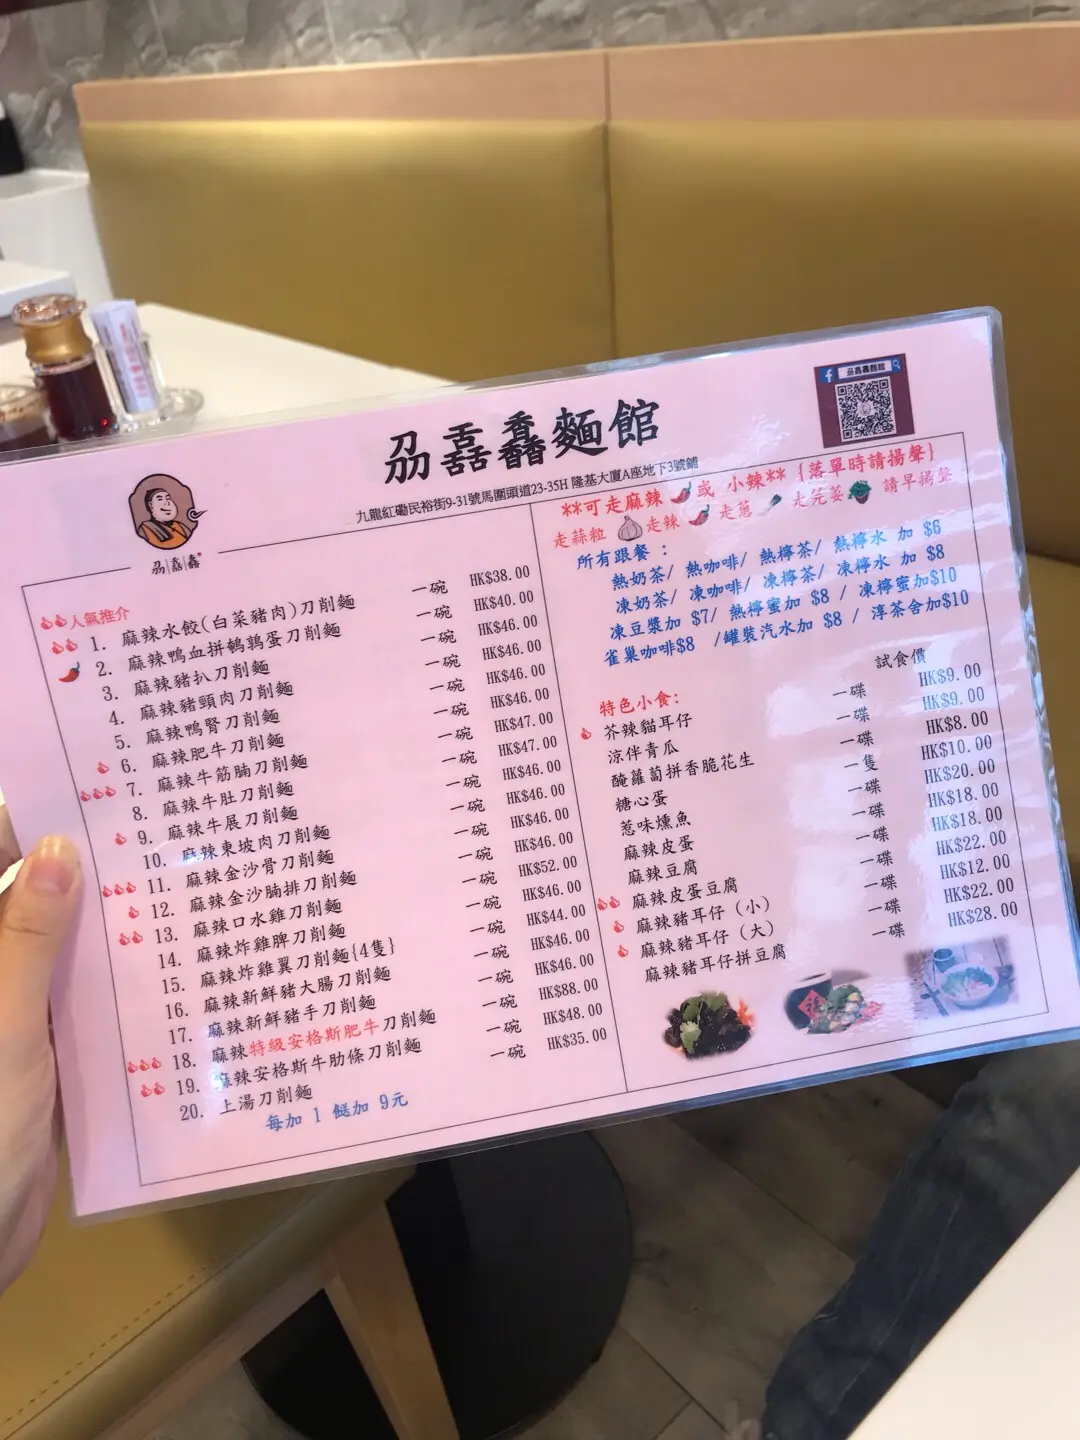 刕嚞馫麵館
九龍紅磡民裕街9-31號馬圍頭道23-35H 隆基大廈A座地下3號鋪
刕嚞馫麵館
刕|嚞|馫
人氣推介
1. 麻辣水餃(白菜豬肉)刀削麵 一碗 HK$38.00
2. 麻辣鴨血拼鵪鶉蛋刀削麵 一碗 HK$40.00
3. 麻辣豬扒刀削麵 一碗 HK$46.00
4. 麻辣豬頸肉刀削麵 一碗 HK$46.00
5. 麻辣鴨腎刀削麵 一碗 HK$46.00
6. 麻辣肥牛刀削麵 一碗 HK$46.00
7. 麻辣牛筋腩刀削麵 一碗 HK$47.00
8. 麻辣牛肚刀削麵 一碗 HK$47.00
9. 麻辣牛展刀削麵 一碗 HK$46.00
10. 麻辣東坡肉刀削麵 一碗 HK$46.00
11. 麻辣金沙骨刀削麵 一碗 HK$46.00
12. 麻辣金沙腩排刀削麵 一碗 HK$46.00
13. 麻辣口水雞刀削麵 一碗 HK$52.00
14. 麻辣炸雞脾刀削麵 一碗 HK$46.00
15. 麻辣炸雞翼刀削麵{4隻} 一碗 HK$44.00
16. 麻辣新鮮豬大腸刀削麵 一碗 HK$46.00
17. 麻辣新鮮豬手刀削麵 一碗 HK$46.00
18. 麻辣特級安格斯肥牛刀削麵 一碗 HK$88.00
19. 麻辣安格斯牛肋條刀削麵 一碗 HK$48.00
20. 上湯刀削麵 一碗 HK$35.00
每加 1 餸加 9元
**可走麻辣 或 小辣** {落單時請揚聲}
走蒜粒 走辣 走蔥 走芫荽 請早揚聲
所有跟餐 :
熱奶茶/ 熱咖啡/ 熱檸茶/ 熱檸水 加 $6
凍奶茶/ 凍咖啡/ 凍檸茶/ 凍檸水 加 $8
凍豆漿加 $7/ 熱檸蜜加 $8 / 凍檸蜜加$10
雀巢咖啡$8 /罐裝汽水加 $8 / 淳茶舍加$10
試食價
特色小食:
芥辣貓耳仔 一碟 HK$9.00
涼伴青瓜 一碟 HK$9.00
醃蘿蔔拼香脆花生 一碟 HK$8.00
糖心蛋 一隻 HK$10.00
惹味燻魚 一碟 HK$20.00
麻辣皮蛋 一碟 HK$18.00
麻辣豆腐 一碟 HK$18.00
麻辣皮蛋豆腐 一碟 HK$22.00
麻辣豬耳仔 (小) 一碟 HK$12.00
麻辣豬耳仔 (大) 一碟 HK$22.00
麻辣豬耳仔拼豆腐 一碟 HK$28.00